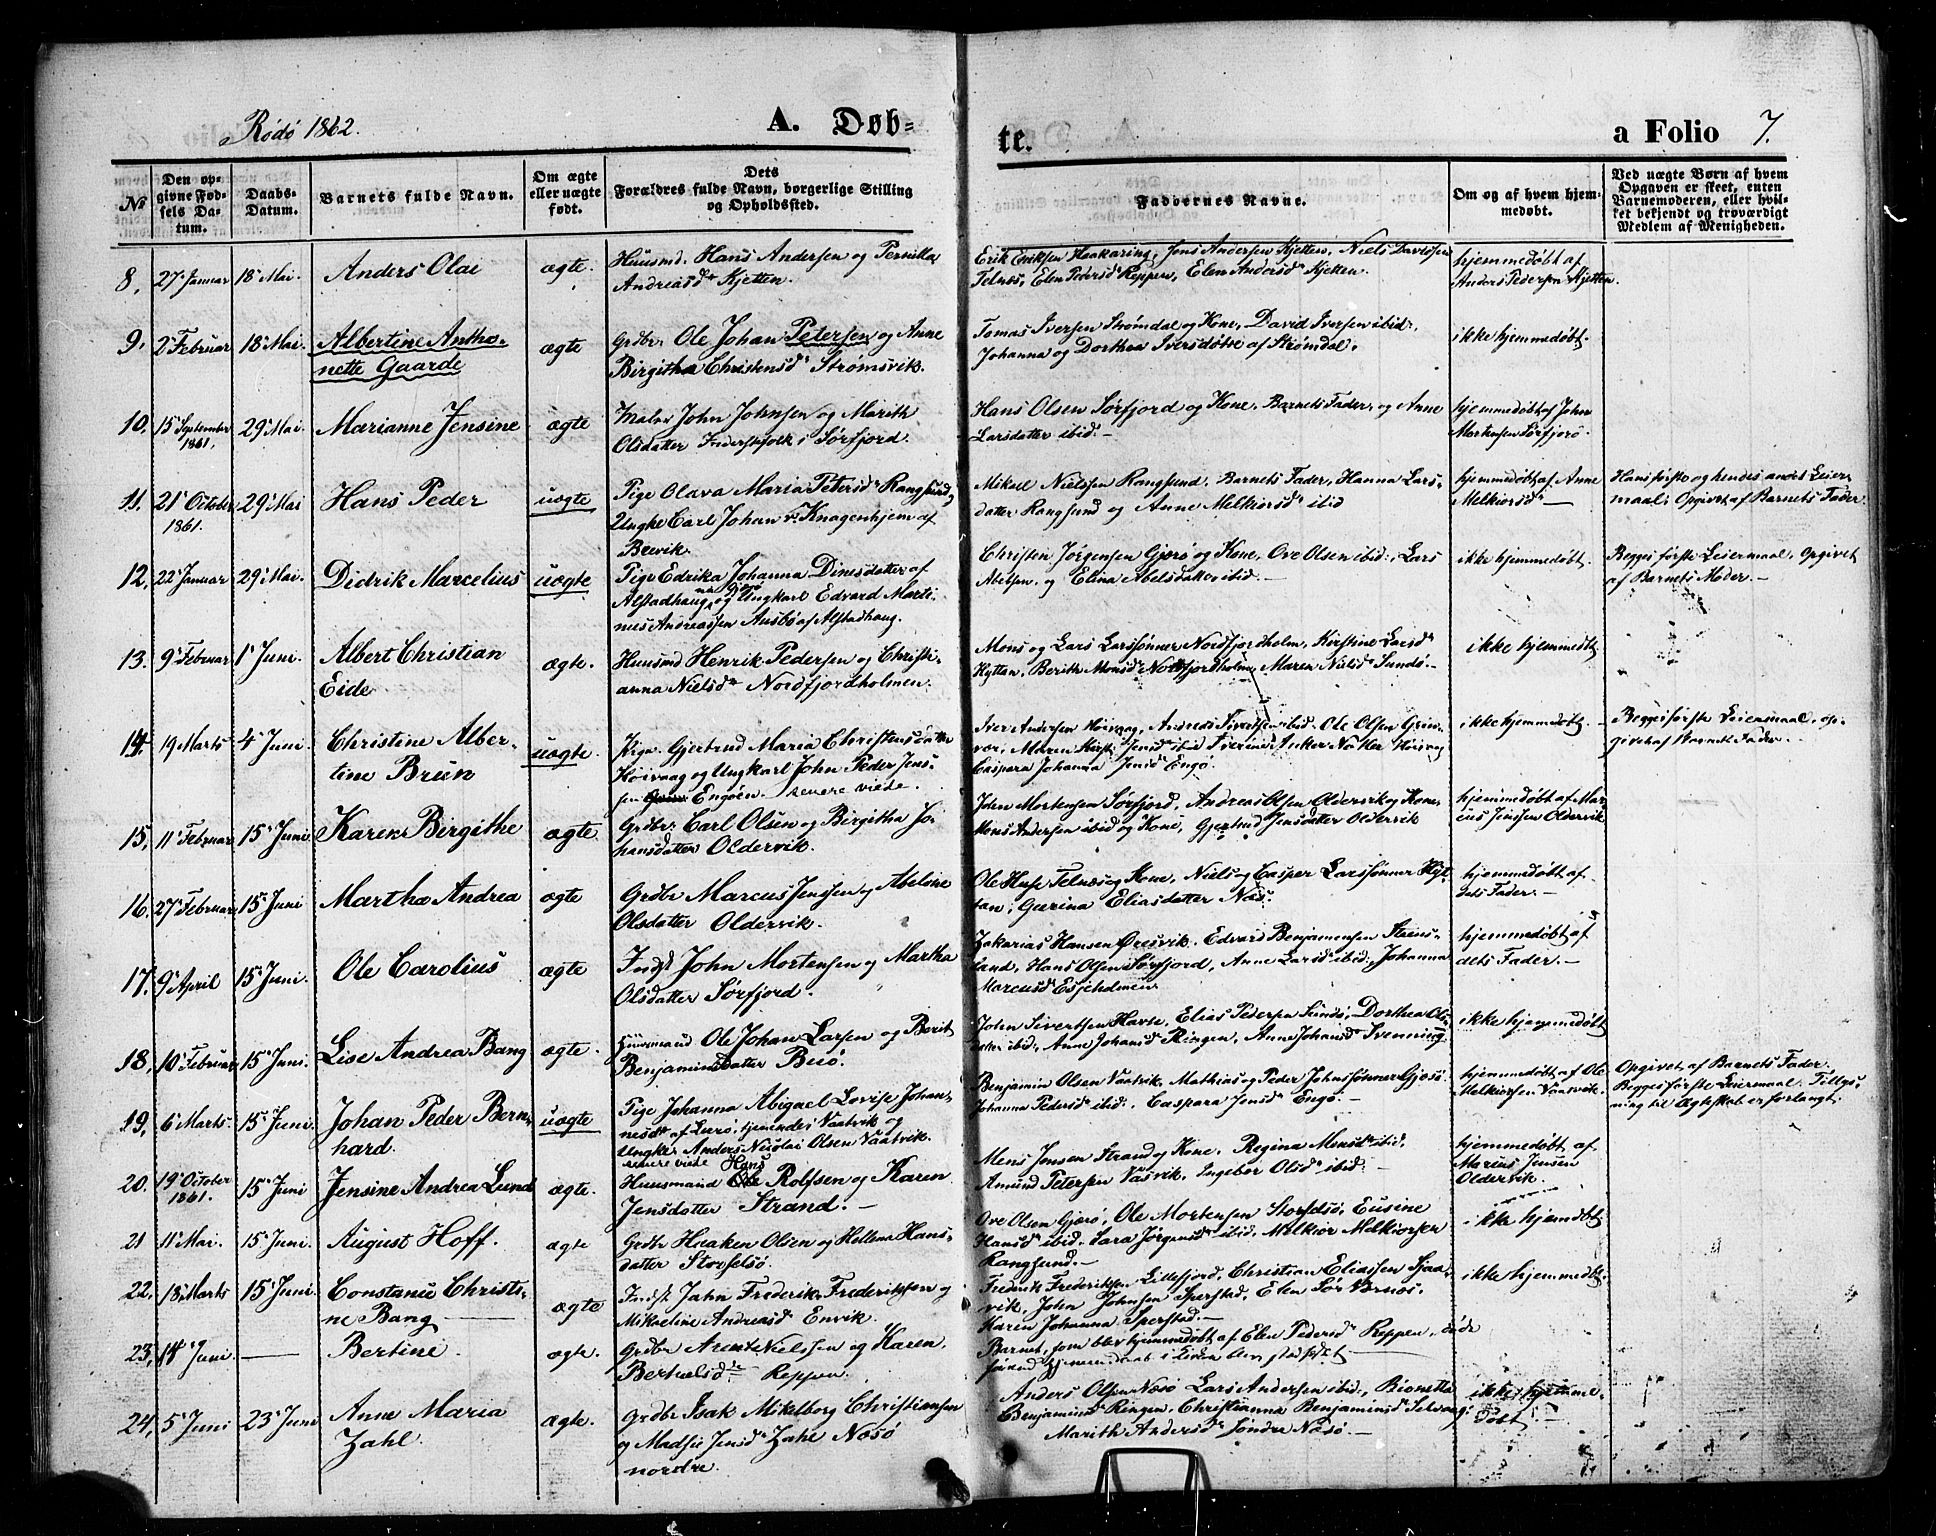 Rödö 1862.
A. Døb-
te.
a Folio 7.
№
Den op-
givne Fød-
sels Da-
tum.
Daabs-
Datum.
Barnets fulde Navn.
Om ægte
eller uægte
født.
Dets
Forældres fulde Navn, borgerlige Stilling
og Opholdssted.
Faddernes Navne.
Om og af hvem hjem-
medøbt.
Ved uægte Børn af hvem
Opgaven er skeet, enten
Barnemoderen, eller hvil-
ket bekjendt og troværdigt
Medlem af Menigheden.
8, 27 Januar 18 Mai. Anders Olai ægte.
Huusmd. Hans Andersen og Pernilla
Andreasdr Kjetten.
Erik Eriksen Haakaring, Jens Andersen Kjetten, Niels Davidsen
Telnæs, Elen Pedersdr Reppen, Elen Andersdr Kjetten.
hjemmedøbt af
Anders Pedersen Kjetten.
9. 2 Februar 18 Mai. Albertine Antho-
nette Gaarde
ægte
Grdbr. Ole Johan Petersen og Anne
Birgitha Christensdr Strømsvik.
Tomas Iversen Strømdal og Kone, David Iversen ibid.,
Johanna og Dorthea Iversdøtre af Strømdal.
ikke hjemmedøbt.
10. 15 September
1861.
29 Mai. Marianne Jensine ægte
Maler John Johnsen og Marith
Olsdatter Inderstfolk i Sørfjord.
Hans Olsen Sørfjord og Kone, Barnets Fader, og Anne
Larsdatter ibid. —
hjemmedøbt af John
Mortensen Sørfjord.
11. 21 October
1861.
29 Mai Hans Peder uægte
Pige Olava Maria Petersdr Rangsund,
Ungke Carl Johan v. Knagenhjem af
Brevik.
Mikal Nielsen Rangsund, Barnets Fader, Hanna Lars-
datter Rangsund og Anne Melkiorsd ibid
hjemmedøbt af Anne
Melkiorsdr —
Hans første og hendes andet Leier-
maal. Opgivet af Barnets Fader.
12. 22 Januar 29 Mai. Didrik Marcelius uægte
Pige Edrika Johanna Dinesdatter af
Alstadhaug, og Ungkarl Edvard Marti-
nus Andreassen Ausbø af Alstadhaug.
Christen Jørgensen Gjerø og Kone, Ove Olsen ibid., Lars
Abelsen, og Elina Abelsdatter ibid. —
ikke hjemmedøbt.
Begges første Leiermaal, Opgivet
af Barnets Moder. —
13. 9 Februar 1 Juni. Albert Christian
Eide
ægte.
Huusmd Henrik Pedersen og Christi-
anna Nielsdr Nordfjordholmen.
Mons og Lars Larssønner Nordfjordholm, Kirstine Larsdr
Hyttan, Berith Monsdr Nordfjordholm, Maren Nielsdr Sundø. —
ikke hjemmedt
14. 19 Marts 4 Juni. Christine Alber-
tine Brun
uægte.
Pige Gjertrud Maria Christensdatter
Høivaag og Ungkarl John Peder Jens-
sen Engøen. senere viede.
Iver Andersen Høivaag, Andreas Sivertsen ibid. Ole Olsen Grin-
vær, Maren Kirst. Jensdr ibid Anker Naker Høivag
Caspara Johanna Jensdr Engø.
ikke hjemmedøbt. —
Begges første Leiermaal, op-
givet af Barnets Fader. —
15, 11 Februar 15 Juni. Karen Birgithe ægte.
Grdbr. Carl Olsen og Birgitha Jo-
hansdatter Oldervik.
John Mortensen Sørfjord, Andreas Olsen Oldervik og Kone
Mons Andersen ibid og Kone, Gjertrud Jensdatter Oldervik
hjemmedøbt af Mar-
cus Jenssen Oldervik
16. 27 Februar 15 Juni Martha Andrea ægte
Grdbr Marcus Jenssen og Abelone
Olsdatter Oldervik.
Ole Huse Telnæs og Kone, Niels og Casper Larssønner Hyt-
tan, Gurina Eliasdatter Næs.
hjemmedøbt af
dets Fader. —
17. 9 April 15 Juni. Ole Carolius ægte
Indst John Mortensen og Martha
Olsdatter Sørfjord.
Zakarias Hansen Øresvik, Edvard Benjaminsen Stens-
land, Hans Olsen Sørfjord, Anne Larsdr ibid., Johanna
Marcusdr Esjeholmen
hjemmedøbt af
dets Fader. —
18, 10 Februar 15 Juni. Lise Andrea Bang ægte.
Huusmand Ole Johan Larsen og Berit
Benjaminsdatter Buø.
John Sivertsen Havte, Elias Pedersen Sundø, Dorthea Ols-
datter ibid., Anne Johansdr Ringen, Anne Johansdr Svenning
ikke hjemmedøbt
19, 6 Marts 15 Juni. Johan Peder Bern-
hard.
uægte
Pige Johanna Abigael Lovise Johan-
nesdr af Lurø, tjenende i Vaatvik og
Ungkr. Anders Nicolai Olsen Vaatvik.
senere viede
Benjamin Olsen Vaatvik, Mathias og Peder Johnsønner Gjesø.
Johanna Pedersdr ibid., Caspara Jensdr Engø. —
hjemmedøbt af Ole
Melkiorsen Vaatvik.
Opgivet af Barnets Fader.
Begges første Leiermaal. Tillys-
ning til Ægteskab er forlangt.
20. 19 October
1861.
15 Juni Jensine Andrea Lund ægte.
Huusmand Hans Rolfsen og Karen
Jensdatter Strand. —
Mons Jensen Strand og Kone, Regina Monsdr ibid,
Amund Petersen Vasvik, Ingebor Olsdr ibid. —
hjemmedøbt af
Marius Jensen
Oldervik.
21 11 Mai. 15 Juni. August Hoff. ægte
Grdbr Haaken Olsen og Hellena Hans-
datter Storselsø.
Ove Olsen Gjerø, Ole Mortensen Storselsø, Eusine
Hansdr ibid. Sara Jørgensdr ibid. Melkior Melkiorsen
Rangsund. —
ikke hjemdøbt
22. 18 Marts 15 Juni. Constance Christi-
ne Bang
ægte
Indst. Jahn Frederik Frederiksen og
Mikaeline Andreasdr Envik.
Fredrik Frederiksen Lillefjord, Christian Eliassen Sjaa-
vik, John Johnsen Sperstad, Elen Sør Værnæs.
Karen Johanna Sperstad. —
ikke hjemmedøbt.
23, 14 Juni. — Bertine. ægte.
Grdbr Arent Nielssen og Karen
Berthelsdr Reppen.
Barnet, som blev hjemmedøbt af Elen Pedersdr Reppen, døde
førend Hjemmedaab i Kirken blev stadfæstet —
24, 5 Juni 23 Juni Anne Maria
Zahl.
ægte.
Grdbr Isak Mikelborg Christiansen
og Madsie Jensdr Zahl Næsø
nordre.
Anders Olsen Næsø Lars Andersen ibid., Bionetta
Benjaminsdr Ringen, Christianna Benjaminsdr Selvaag.
Marith Andersdr Søndre Næsø. —
ikke hjemme-
døbt —